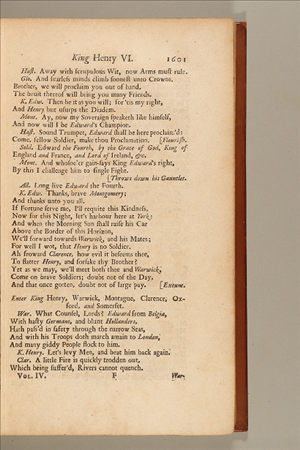 King Henry VI. 1601
Hast. Away with scrupulous Wit, now Arms must rule.
Glo. And fearless minds climb soonest unto Crowns.
Brother, we will proclaim you out of hand,
The bruit thereof will bring you many Friends.
K. Edw. Then be it as you will; for 'tis my right,
And Henry but usurps the Diadem.
Mont. Ay, now my Soveraign speaketh like himself,
And now will I be Edward's Champion.
Hast. Sound Trumpet, Edward shall be here proclaim'd:
Come, fellow Soldier, make thou Proclamation. [Flourish.
Sold. Edward the Fourth, by the Grace of God, King of
England and France, and Lord of Ireland, &c.
Mont. And whosoe'er gain-says King Edward's right,
By this I challenge him to single Fight.
[Throws down his Gauntlet.
All. Long live Edward the Fourth.
K. Edw. Thanks, brave Montgomery;
And thanks unto you all.
If Fortune serve me, I'll requite this Kindness.
Now for this Night, let's harbour here at York;
And when the Morning Sun shall raise his Car
Above the Border of this Horizon,
We'll forward towards Warwick, and his Mates;
For well I wot, that Henry is no Soldier.
Ah froward Clarence, how evil it beseems thee,
To flatter Henry, and forsake thy Brother?
Yet as we may, we'll meet both thee and Warwick;
Come on brave Soldiers; doubt not of the Day,
And that once gotten, doubt not of large pay. [Exeunt.
Enter King Henry, Warwick, Montague, Clarence, Ox-
ford, and Somerset.
War. What Counsel, Lords? Edward from Belgia,
With hasty Germans, and blunt Hollanders,
Hath pass'd in safety through the narrow Seas,
And with his Troops doth march amain to London,
And many giddy People flock to him.
K. Henry. Let's levy Men, and beat him back again.
Clar. A little Fire is quickly trodden out,
Which being suffer'd, Rivers cannot quench.
VOL. IV. F War.